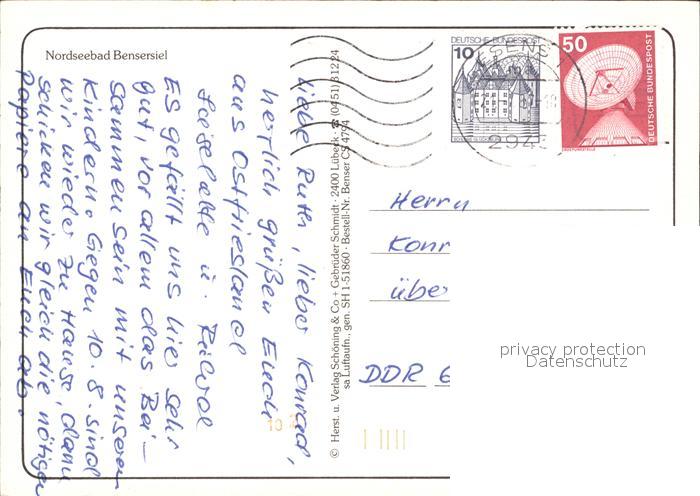 Nordseebad Bensersiel
Liebe Ruth, lieber Konrad,
herzlich grüßen Euch
aus Ostfriesland
Liselotte u.
Es gefällt uns hier sehr
gut, vor allem das Bei-
sammensein mit unseren
Kindern. Gegen 10.8. sind
wir wieder zu Hause, dann
schicken wir gleich die nötigen
Papiere an Euch ab.
© Herst. u. Verlag Schöning & Co + Gebrüder Schmidt · 2400 Lübeck · ☎ (0451) 31224
sa Luftaufn., gen. SH 1-51860 · Bestell-Nr. Benser C 4794
DEUTSCHE BUNDESPOST
10
50
DEUTSCHE BUNDESPOST
ERDEFUNKSTELLE
ESENS
294
Herrn
Konr
über
DDR 6
10
privacy protection
Datenschutz